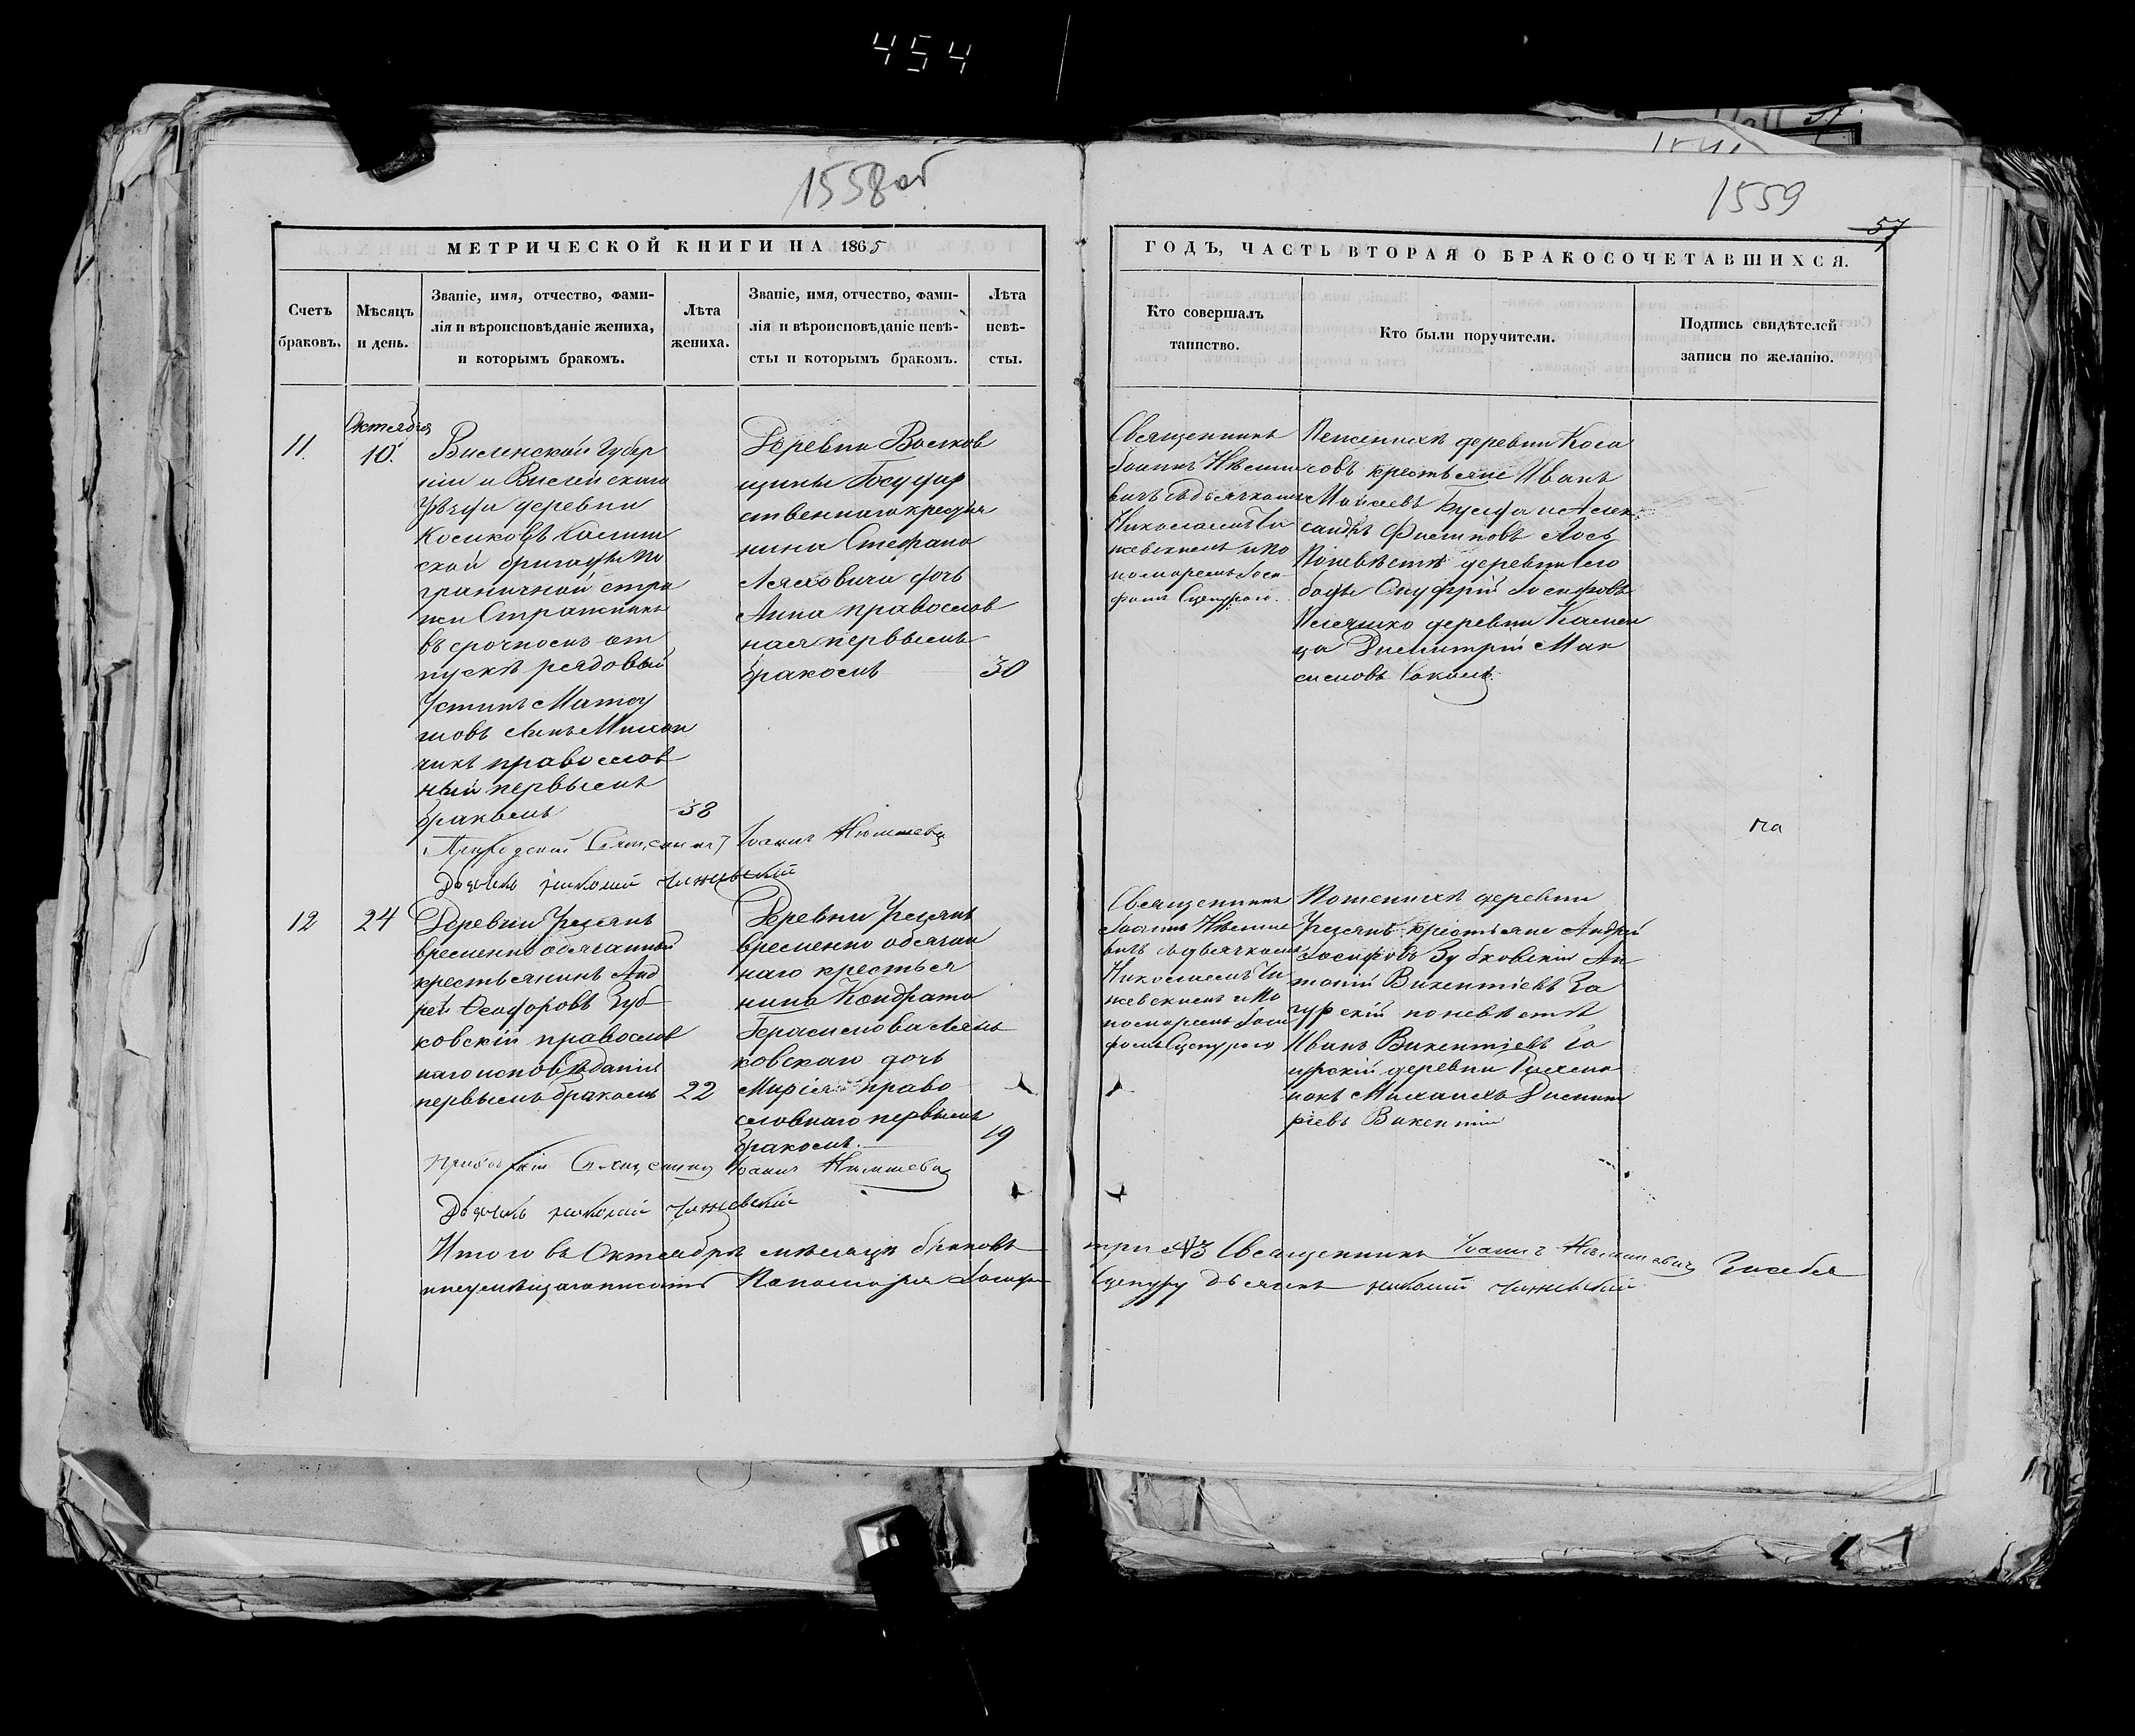 454
1558об
1559
57
МЕТРИЧЕСКОЙ КНИГИ НА 1865
ГОДЪ, ЧАСТЬ ВТОРАЯ О БРАКОСОЧЕТАВШИХСЯ.
Счетъ браковъ.
Мѣсяцъ и день.
Званіе, имя, отчество, фами-
лія и вѣроисповѣданіе жениха,
и которымъ бракомъ.
Лѣта жениха.
Званіе, имя, отчество, фами-
лія и вѣроисповѣданіе невѣ-
сты и которымъ бракомъ.
Лѣта невѣ-
сты.
Кто совершалъ
таинство.
Кто были поручители.
Подпись свидѣтелей
записи по желанію.
11.
Октября
10.
Виленской Губер
ніи и Вилейскаго
Уѣзда деревни
Косиковъ
ской бригады по
граничной стра
жи Стражникъ
въ срочномъ от
пускѣ рядовый
Устинъ Матѳ
православ
ный первымъ
бракомъ
38
Деревни Волков
щины Государ
ственнаго крестья
нина Стефана
Ляховича дочь
Анна православ
ная первымъ
бракомъ
30
Священникъ
Іоаннъ Нѣмше
вичъ съ дьячкомъ
Николаемъ Чи
жевскимъ и по
номаремъ Іоси
фомъ Сцепуро.
По женихѣ деревни Коси
ковъ крестьяне Иванъ
Моисеевъ и Алек
сандръ Филиповъ Лось
По невѣстѣ деревни Сло
боды Онуфрій Іосифовъ
деревни Камен
ца Димитрій Мак
симовъ
Приходскій Священникъ Іоаннъ Нѣмшевичъ
Дьячекъ Николай Чижевскій
12
24
Деревни
временно обязанный
крестьянинъ Анд
рей Ѳеодоровъ Зуб
ковскій православ
наго исповѣданія
первымъ бракомъ
22
Деревни
временно обязан
наго крестья
нина Кондрата
Герасимова Лять
ковскаго дочь
Марія право
славнаго первымъ
бракомъ.
19
Священникъ
Іоаннъ Нѣмше
вичъ съ дьячкомъ
Николаемъ Чи
жевскимъ и по
номаремъ Іоси
фомъ Сцепуро
По женихѣ деревни
крестьяне Андрей
Іосифовъ Зубковскій Ан
тоній Викентіевъ За
гурскій по невѣстѣ
Иванъ Викентіевъ За
гурскій деревни
Михаилъ Димит
ріевъ
Приходскій Священникъ Іоаннъ Нѣмшевичъ
Дьячекъ Николай Чижевскій
Итого въ Октябрѣ мѣсяцѣ браковъ
три №3 Священникъ Іоаннъ Нѣмшевичъ За себя
и неумѣющаго писать Пономаря Іосифа
Сцепуру Дьячекъ Николай Чижевскій